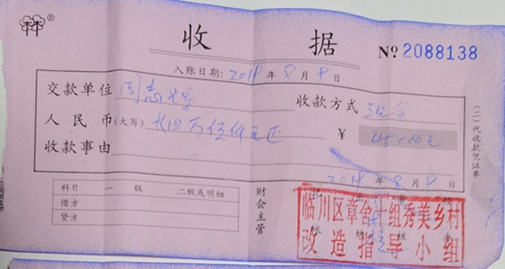 收 据
№ 2088138
入账日期: 2018 年 8 月 8 日
交款单位 周志 收款方式 现金
人民币(大写) 肆万伍仟元正 ¥ 45000元
收款事由
2018 年 8 月 8 日
科目 一级 二级或明细
借方
贷方
财会主管
临川区章舍十组秀美乡村
改造指导小组
(二)代收款凭证单